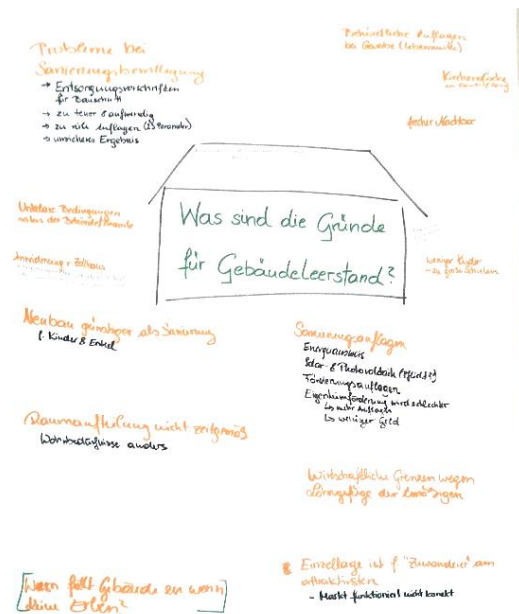 Probleme bei
Sanierungsbewilligung
→ Entsorgungsvorschriften
für Bauschutt
→ zu teuer & aufwendig
→ zu viele Auflagen
→ unsicheres Ergebnis
Behördliche Auflagen
bei Gewerbe (Lebensmittel)
Nachbar
Was sind die Gründe
für Gebäudeleerstand?
Unklare Bedingungen
weniger Kinder
→ zu große Schulen
Neubau günstiger als Sanierung
f. Kinder & Enkel
Sanierungsauflagen
Energieausweis
Solar- & Photovoltaik
Förderungsauflagen
Eigenheimförderung wird schlechter
↳ mehr Auflagen
↳ weniger Geld
Raumaufteilung nicht zeitgemäß
Wohnbedürfnisse anders
Wirtschaftliche Grenzen wegen
Lohngefüge der
Einzellage ist f. "Zuwanderer" am
attraktivsten
- Markt funktioniert nicht korrekt
[Wem fällt Gebäude zu wenn
keine Erben?]